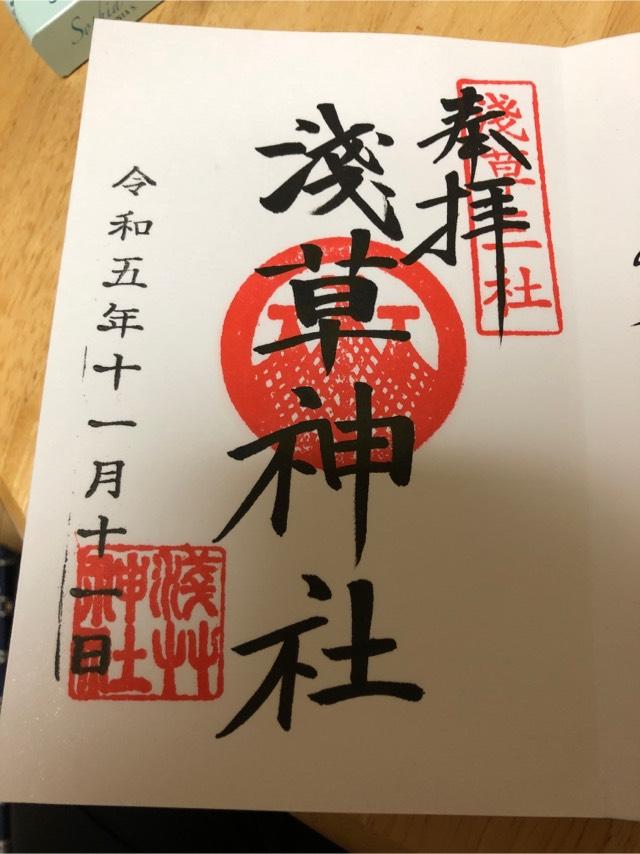 奉拝
浅草三社
淺草神社
令和五年十一月十一日
淺草
神社